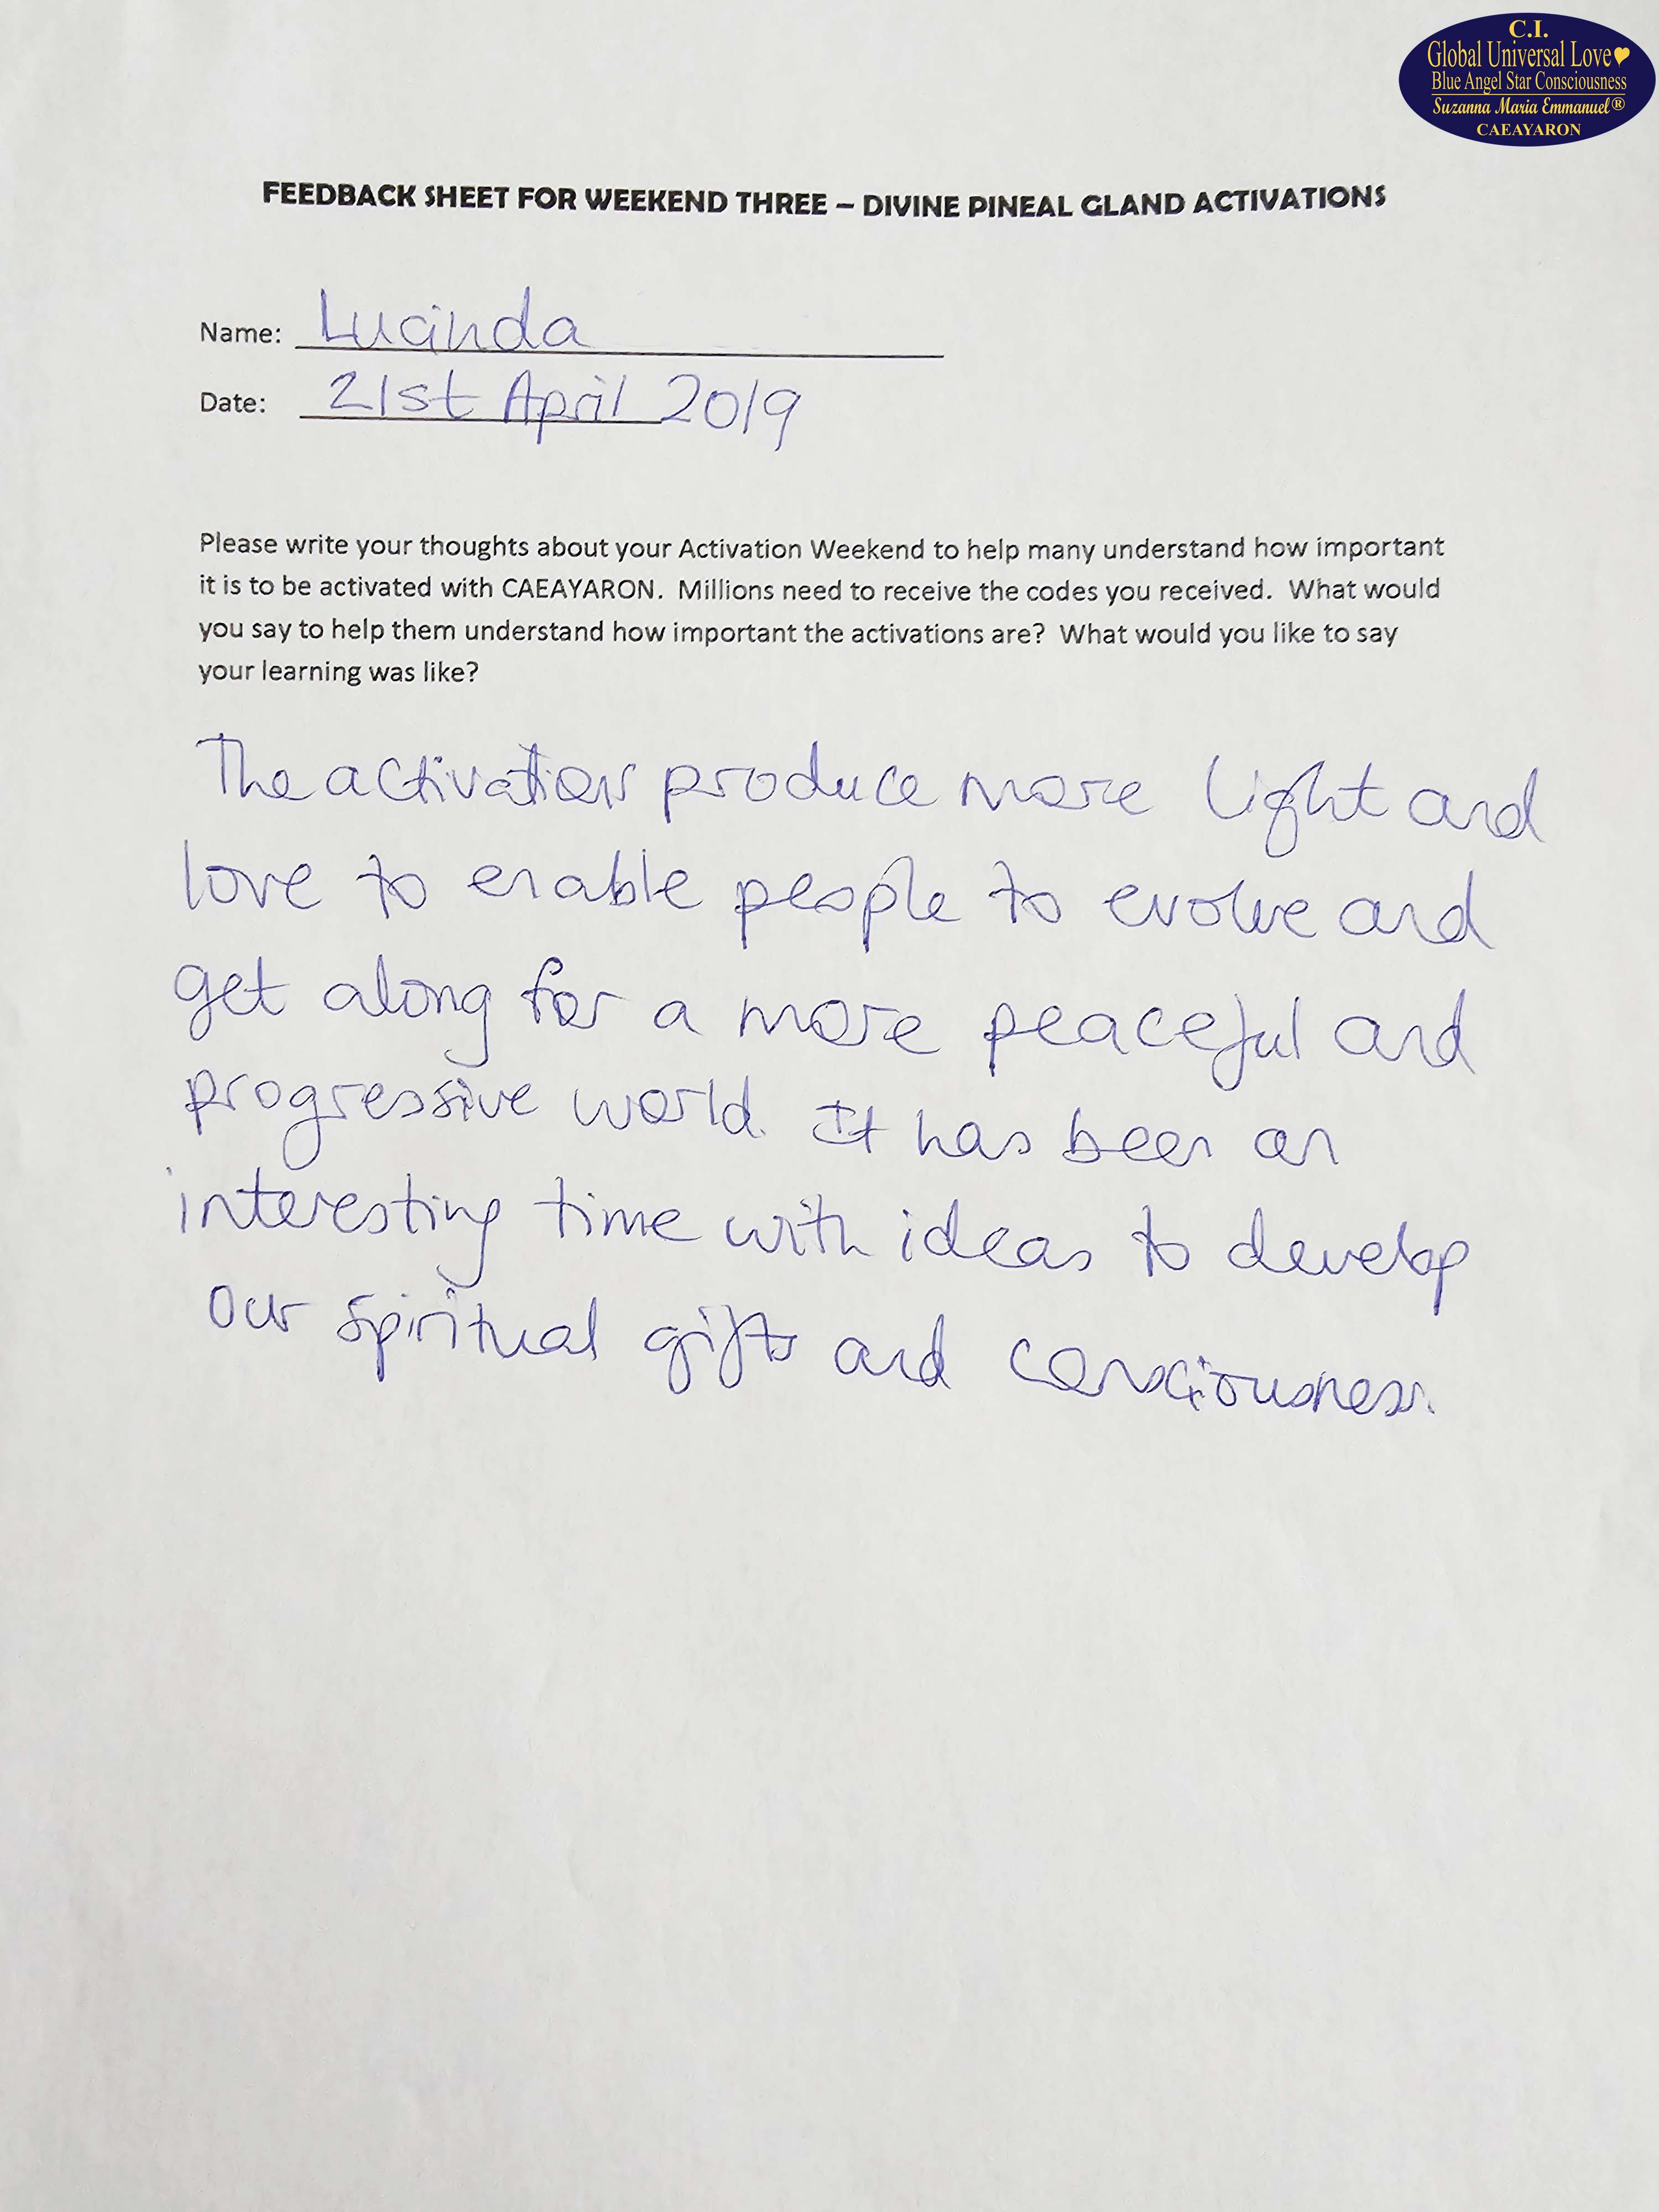 C.I.
Global Universal Love
Blue Angel Star Consciousness
Suzanna Maria Emmanuel®
CAEAYARON
FEEDBACK SHEET FOR WEEKEND THREE – DIVINE PINEAL GLAND ACTIVATIONS
Name: Lucinda
Date: 21st April 2019
Please write your thoughts about your Activation Weekend to help many understand how important
it is to be activated with CAEAYARON.  Millions need to receive the codes you received.  What would
you say to help them understand how important the activations are?  What would you like to say
your learning was like?
The activation produce more light and
love to enable people to evolve and
get along for a more peaceful and
progressive world. It has been an
interesting time with ideas to develop
our spiritual gifts and consciousness.